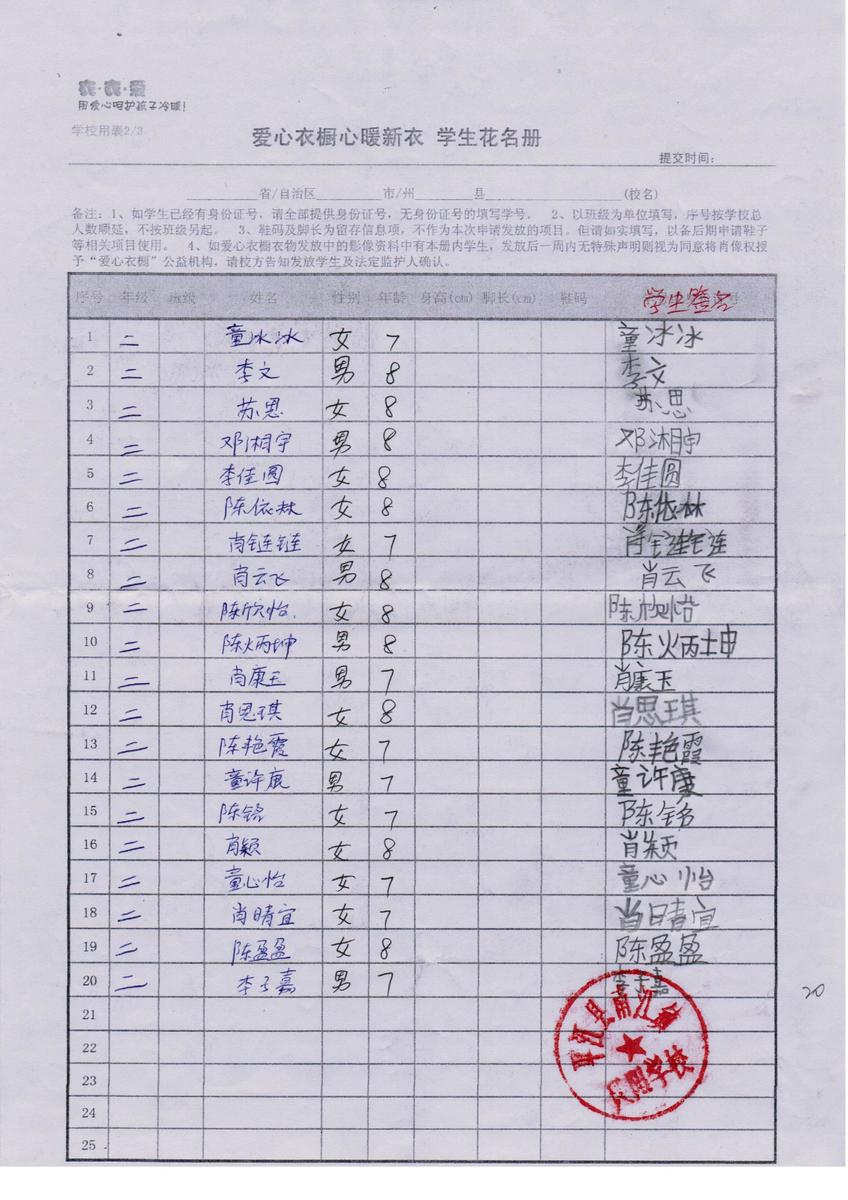 衣·衣·爱
用爱心呵护孩子冷暖!
学校用表2/3
爱心衣橱心暖新衣 学生花名册
提交时间:
省/自治区 市/州 县 (校名)
备注: 1、如学生已经有身份证号,请全部提供身份证号,无身份证号的填写学号。 2、以班级为单位填写,序号按学校总
人数顺延,不按班级另起。 3、鞋码及脚长为留存信息项,不作为本次申请发放的项目。但请如实填写,以备后期申请鞋子
等相关项目使用。 4、如爱心衣橱衣物发放中的影像资料中有本册内学生,发放后一周内无特殊声明则视为同意将肖像权授
予“爱心衣橱”公益机构,请校方告知发放学生及法定监护人确认。
序号 年级 班级 姓名 性别 年龄 身高(cm) 脚长(cm) 鞋码 学生签名
1 二 童冰冰 女 7 童冰冰
2 二 李文 男 8 李文
3 二 苏思 女 8 苏思
4 二 邓湘宇 男 8 邓湘宇
5 二 李佳圆 女 8 李佳圆
6 二 陈依林 女 8 陈依林
7 二 肖链链 女 7 肖链链
8 二 肖云飞 男 8 肖云飞
9 二 陈欣怡 女 8 陈欣怡
10 二 陈炳坤 男 8 陈火丙坤
11 二 肖康玉 男 7 肖康玉
12 二 肖思琪 女 8 肖思琪
13 二 陈艳霞 女 7 陈艳霞
14 二 童许康 男 7 童许康
15 二 陈铭 女 7 陈铭
16 二 肖颖 女 8 肖颖
17 二 童心怡 女 7 童心怡
18 二 肖晴宜 女 7 肖晴宜
19 二 陈盈盈 女 8 陈盈盈
20 二 李子嘉 男 7 李子嘉
20
21
平江县南江镇
学校
22
23
24
25